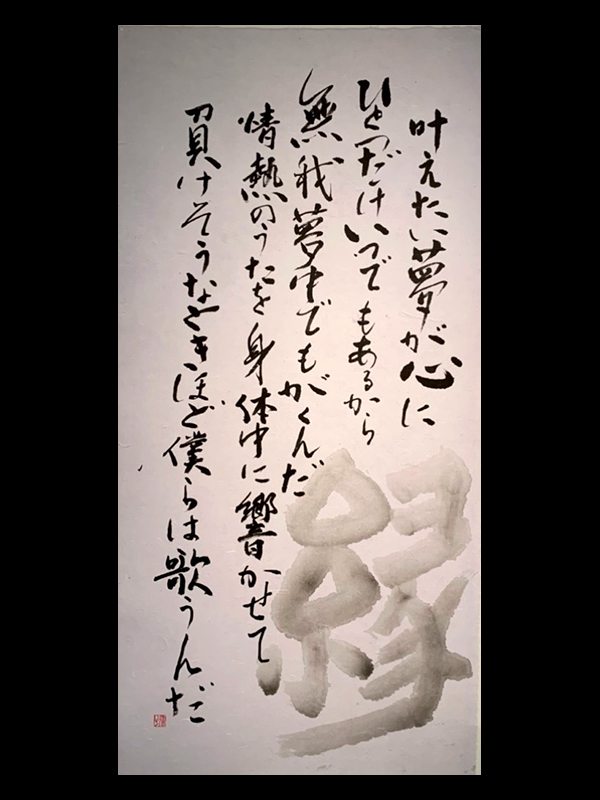 叶えたい夢が心に
ひとつだけいつでもあるから
無我夢中でもがくんだ
情熱のうたを身体中に響かせて
負けそうなときほど僕らは歌うんだ
縁